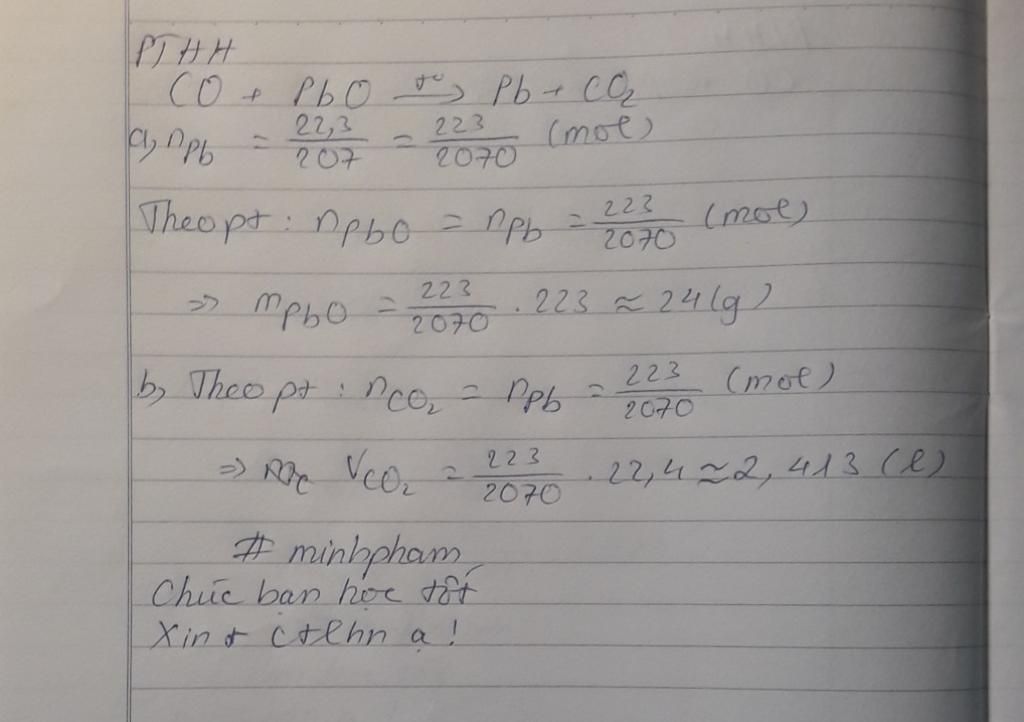 PTHH
CO + PbO t°→ Pb + CO₂
a, nPb = 22,3/207 = 223/2070 (mol)
Theo pt : nPbO = nPb = 223/2070 (mol)
=> mPbO = 223/2070 . 223 ≈ 24 (g)
b, Theo pt : nCO₂ = nPb = 223/2070 (mol)
=> VCO₂ = 223/2070 . 22,4 ≈ 2,413 (l)
# minhpham
Chúc bạn học tốt
Xin + ctlhn ạ !